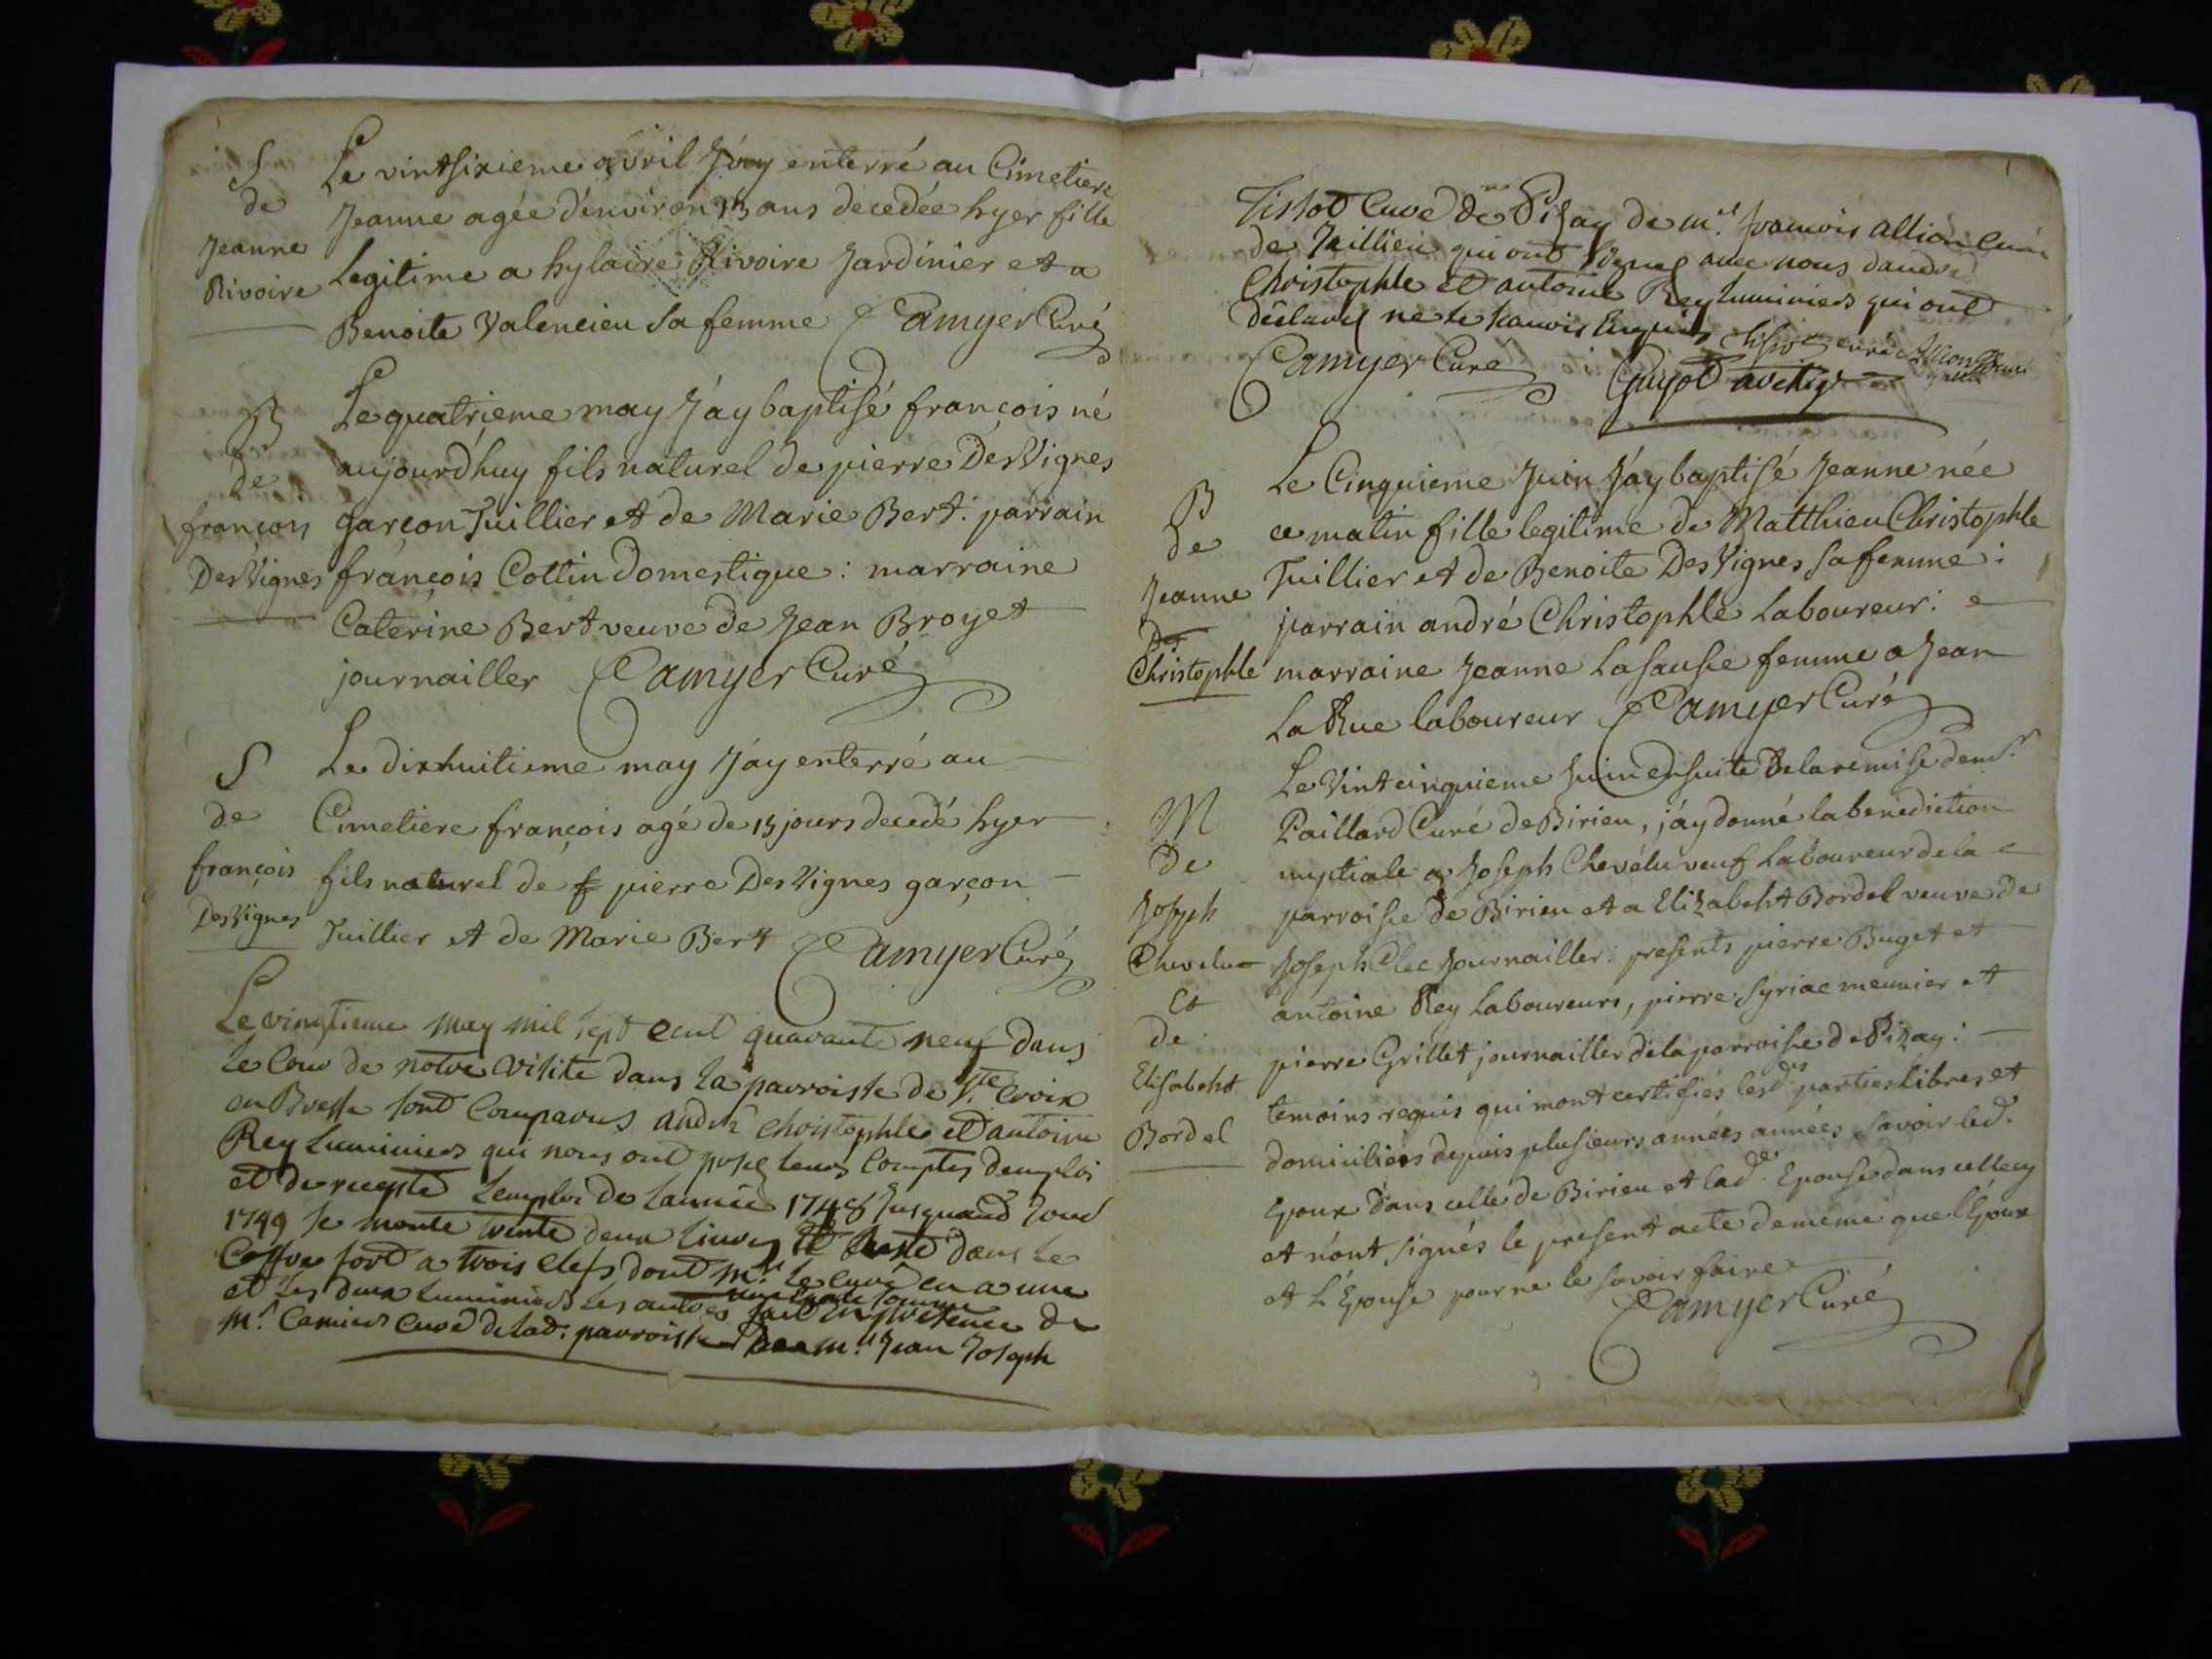 S
de
Jeanne
Rivoire
Le vintsixieme avril J'ay enterré au Cimetiere
Jeanne agée d'environ 13 ans decedée hyer fille
Legitime a hylaire Rivoire Jardinier et a
Benoite Valencieu sa femme Camyer Curé
B
de
françois
DesVignes
Le quatrieme may J'ay baptisé françois né
aujourd'huy fils naturel de pierre DesVignes
garçon Tuillier et de Marie Bert: parrain
françois Cottin domestique: marraine
Caterine Bert veuve de Jean Broyet
journailler Camyer Curé
S
de
françois
DesVignes
Le dixhuitieme may J'ay enterré au
Cimetiere françois agé de 15 jours decedé hyer
fils naturel de pierre DesVignes garçon
Tuillier et de Marie Bert Camyer Curé
Le vingtieme may mil sept cent quarante neuf dans
le Cour de notre Visite dans la parroisse de Ste Croix
en Bresse sont Comparus andré christophle et antoine
Rey Luminiers qui nous ont posé leurs Comptes demploi
et de recepte Lemploi de Lannée 1748 Jusquand Jour
1749 se monte trente deux livres et Reste dans le
Coffre fort a trois clefs dont Mr. le curé en a une
et les deux Luminiers les autres fait en presence de
Mr. Camier Curé de lad. parroisse de mr. Jean Joseph
Tissot Curé de Pisay de mre. francois allion curé
de Jaillieu qui ont signes avec nous dandré
Christophle et antoine Rey luminiers qui ont
déclarés ne le scavoir Enquis Tissot curé Allion
Camyer Curé Guyot
B
de
Jeanne
Christophle
Le Cinquieme Juin J'ay baptisé Jeanne née
ce matin fille legitime de Matthieu Christophle
Tuillier et de Benoite DesVignes sa femme:
parrain andré Christophle Laboureur:
marraine Jeanne Lasausse femme a Jean
La Rue laboureur Camyer Curé
M
de
Joseph
Chevelu
Et
de
Elisabeht
Bordel
Le Vintcinquieme Juin ensuite de la remise de mr.
Paillard Curé de Birieu, j'ay donné la benediction
nuptiale a Joseph Chevélu veuf Laboureur de la
parroisse de Birieu et a Elizabeht Bordel veuve de
Joseph Clec Journailler: presents pierre Buget et
antoine Rey Laboureurs, pierre Syriac meunier et
pierre Grillet journailler de la parroisse de Pizay:
temoins requis qui mont certifiés lesds. parties libres et
domiciliées depuis plusieurs années années savoir led.
Epoux dans celle de Birieu et lade. Epouse dans cellecy
et n'ont signés le present acte de meme que l'Epoux
et L'Epouse pour ne le savoir faire
Camyer Curé